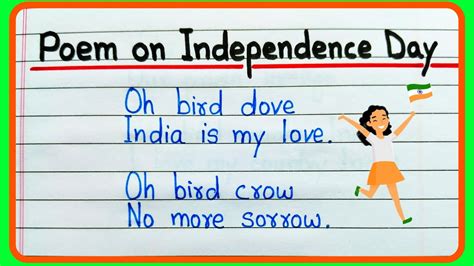 Poem on Independence Day
Oh bird dove
India is my love.
Oh bird crow
No more sorrow.